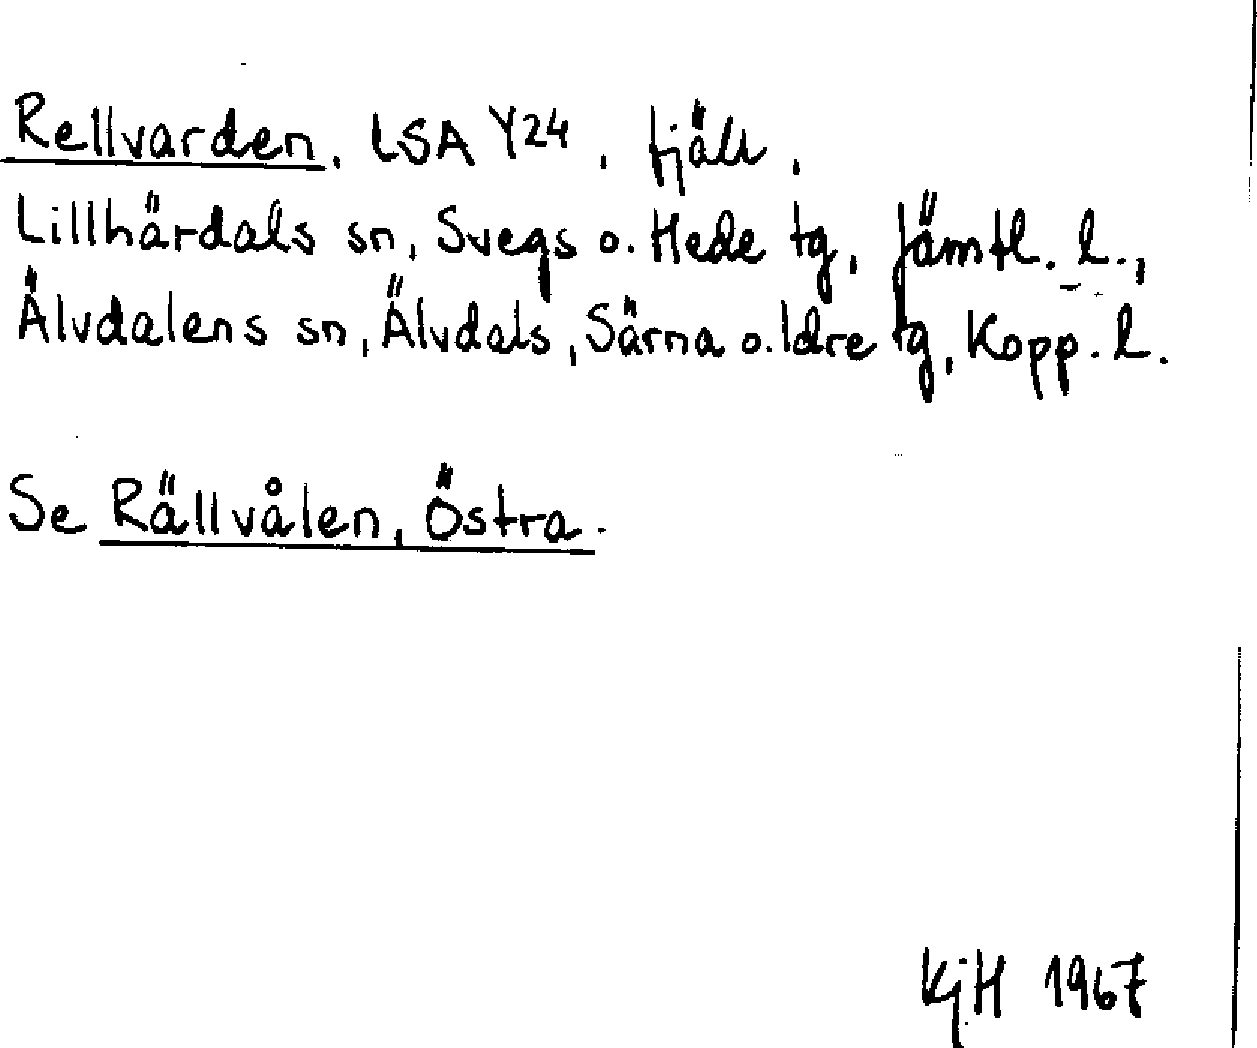 Rellvarden, LSA Y24, fjäll,
Lillhärdals sn, Svegs o. Hede tg, Jämtl. l.,
Älvdalens sn, Älvdals, Särna o. Idre tg, Kopp. l.
Se Rällvålen, Östra.
KjH 1967